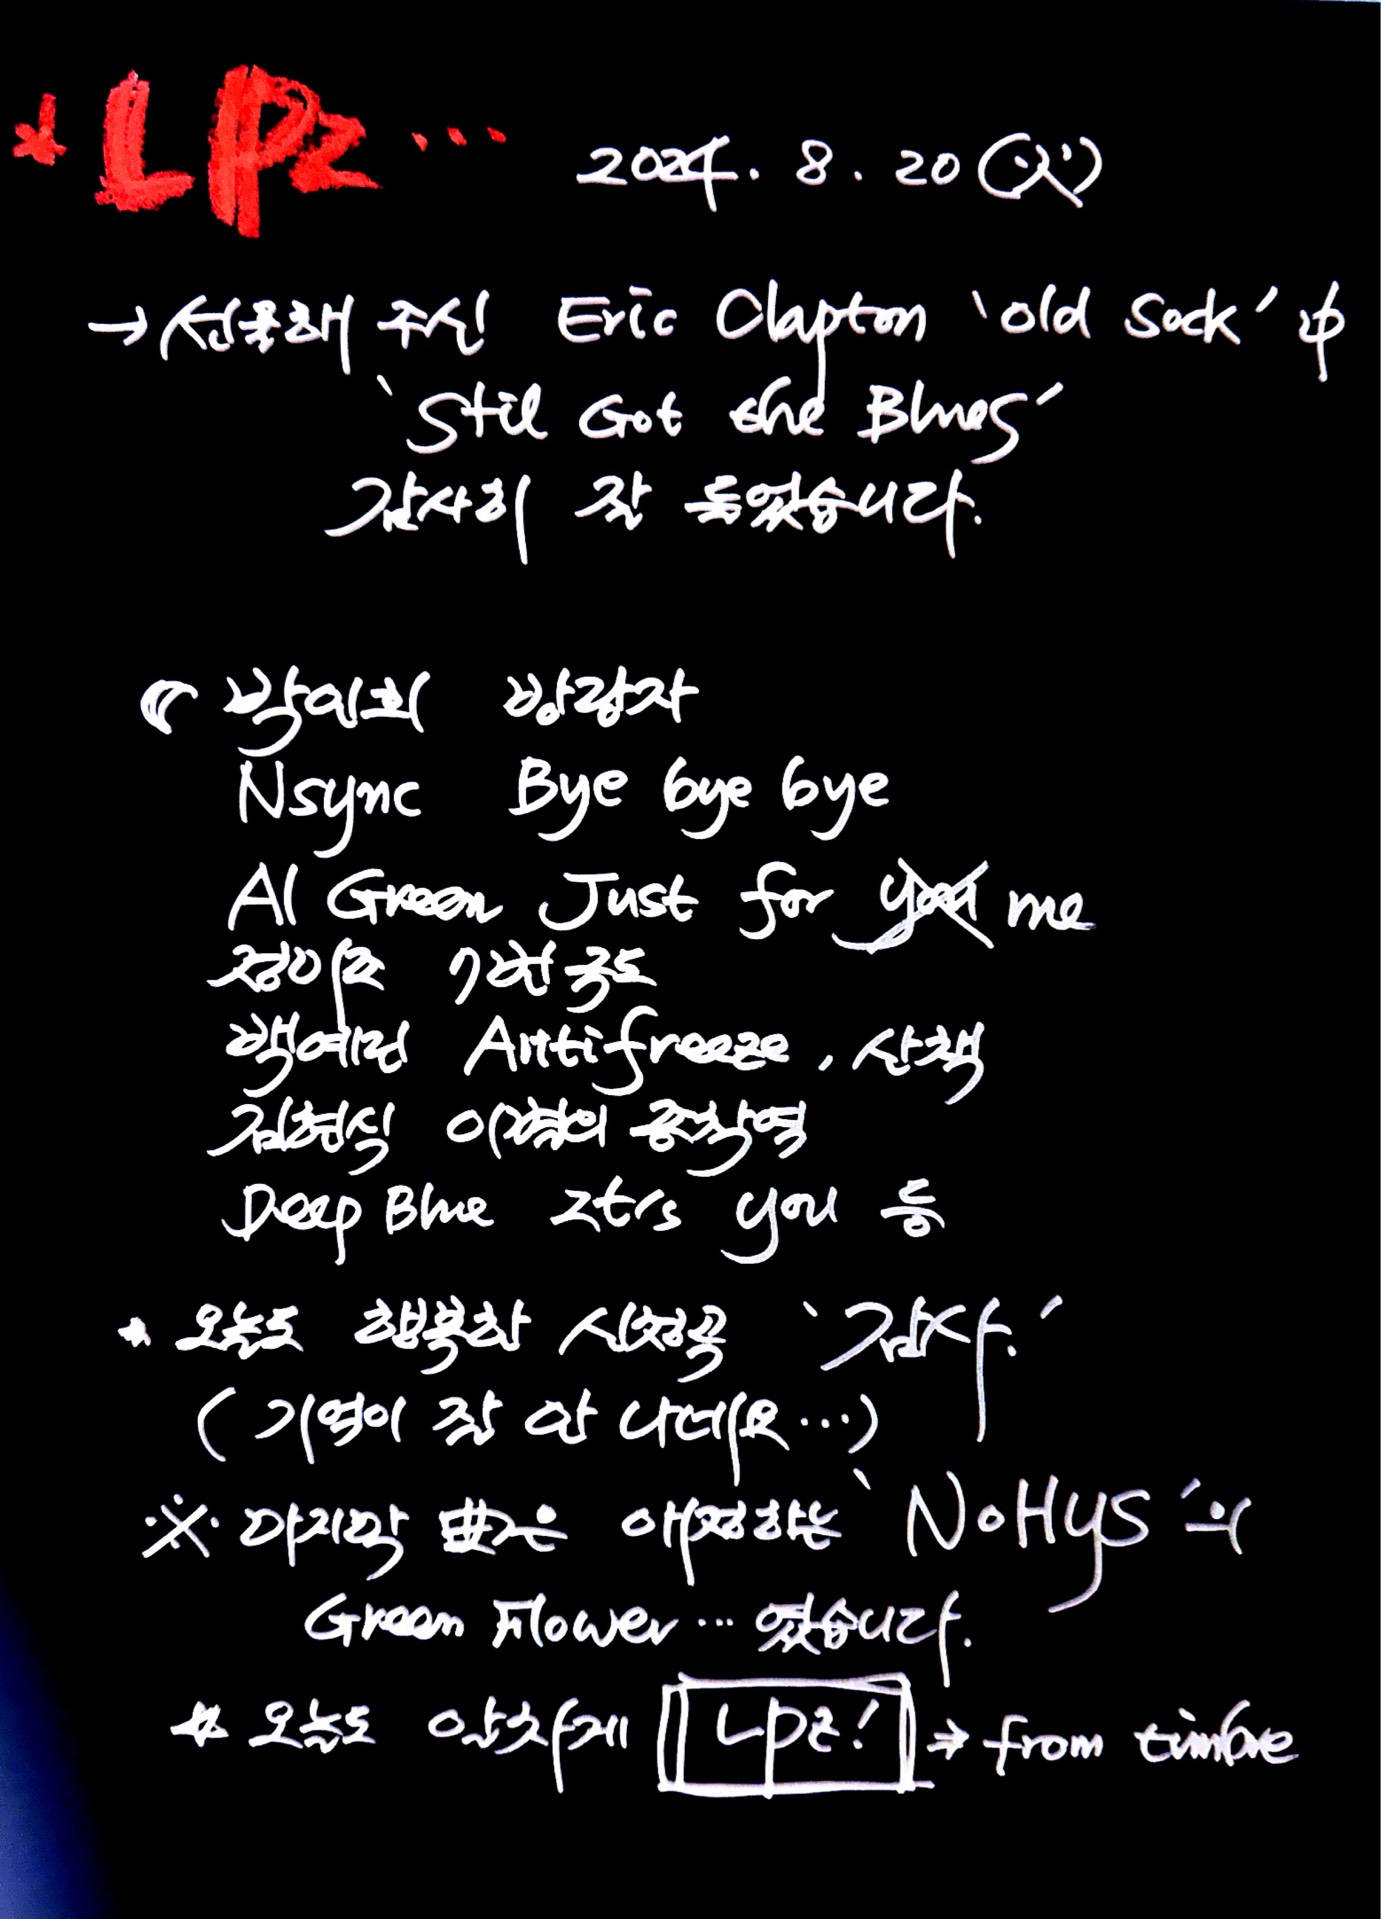 * LPz ... 2024. 8. 20 (火)
→ 선물해 주신 Eric Clapton 'Old Sock' 中
'Still Got the Blues'
감사히 잘 들었습니다.
박인희 방랑자
Nsync Bye bye bye
Al Green Just for you me
정미조 7번 국도
백예린 Antifreeze, 산책
김현식 이별의 종착역
Deep Blue It's you 등
* 오늘도 행복한 신청곡 '감사.'
(기억이 잘 안 나네요...)
※ 마지막 曲은 애정하는 'NoHys'의
Green Flower ... 였습니다.
* 오늘도 알차게 LPz! → from timbre